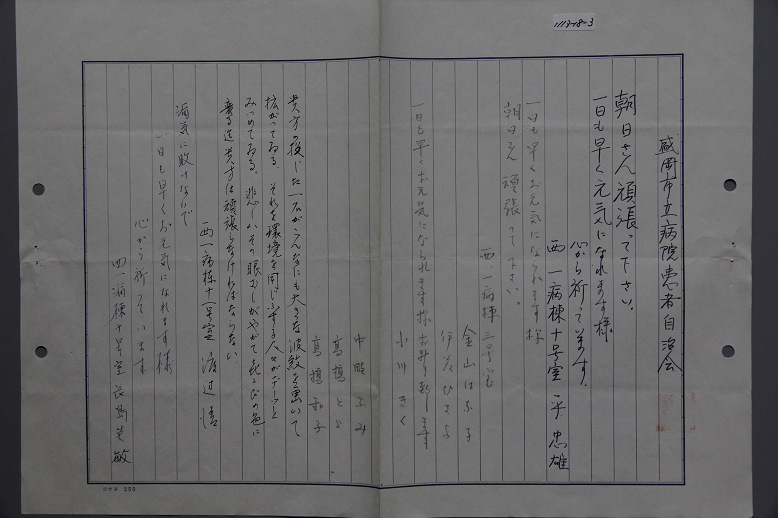 1113-18-3
盛岡市立病院患者自治会
朝日さん頑張って下さい。
一日も早く元気になれます様
心から祈って居ます。
西一病棟十号室 平 忠雄
一日も早くお元気になられます様
朝日さん頑張って下さい。
西一病棟三号室
金山はる子
伊藤ひさよ
一日も早くお元気になられます様お祈り致します
小川きく
中野ふみ
高橋とよ
高橋和子
貴方の投じた一石がこんなにも大きな波紋を画いて
拡がってゐる。それを環境を同じふする人々がヂーッと
みつめてゐる。悲しいその眼ざしがやがて喜びの色に
変る迄貴方は頑張らなければならない
西一病棟十一号室 渡辺 清
病気に敗けないで
一日も早くお元気になれます様
心から祈っています
西一病棟十号室 長島 敏
コクヨ 255